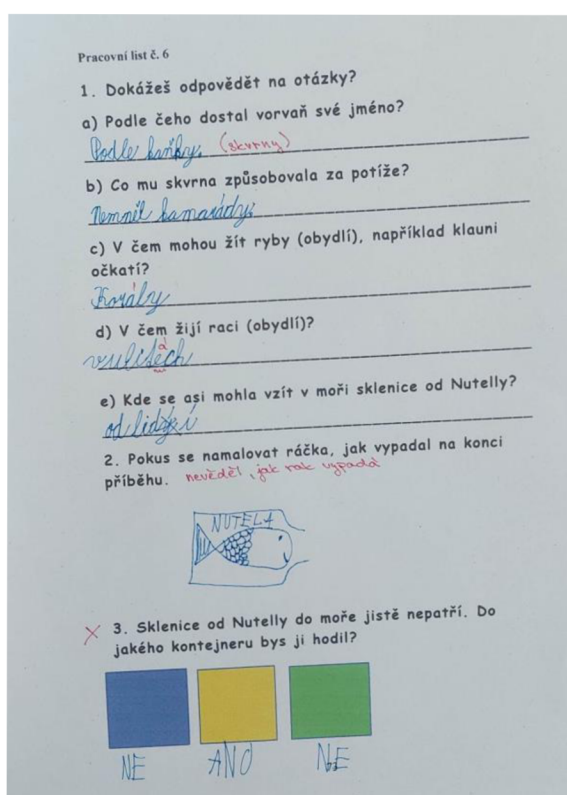 Pracovní list č. 6
1. Dokážeš odpovědět na otázky?
a) Podle čeho dostal vorvaň své jméno?
Podle kaňky. (skvrny)
b) Co mu skvrna způsobovala za potíže?
Neměl kamarády.
c) V čem mohou žít ryby (obydlí), například klauni
očkatí?
Korály
d) V čem žijí raci (obydlí)?
e) Kde se asi mohla vzít v moři sklenice od Nutelly?
od lidí
2. Pokus se namalovat ráčka, jak vypadal na konci
příběhu. nevěděl, jak rak vypadá
NUTELA
X 3. Sklenice od Nutelly do moře jistě nepatří. Do
jakého kontejneru bys ji hodil?
NE ANO NE